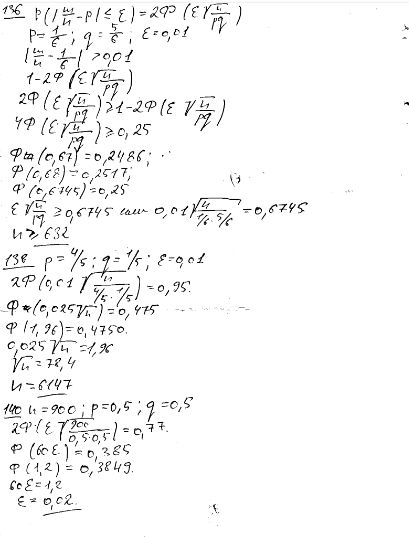 136 P(|m/n - p| ≤ ε) = 2Ф(ε√(n/pq))
P = 1/6; q = 5/6; ε = 0,01
|m/n - 1/6| > 0,01
1 - 2Ф(ε√(n/pq))
2Ф(ε√(n/pq)) ≥ 1 - 2Ф(ε√(n/pq))
4Ф(ε√(n/pq)) ≥ 0,25
Ф(0,67) = 0,2486;
Ф(0,68) = 0,2517;
Ф(0,6745) = 0,25
ε√(n/pq) ≥ 0,6745 или 0,01√(n/(1/6·5/6)) = 0,6745
n ≥ 632
138 p = 4/5; q = 1/5; ε = 0,01
2Ф(0,01√(n/(4/5·1/5))) = 0,95.
Ф(0,025√n) = 0,475
Ф(1,96) = 0,4750.
0,025√n = 1,96
√n = 78,4
n = 6147
140 n = 900; p = 0,5; q = 0,5
2Ф(ε√(900/(0,5·0,5))) = 0,77.
Ф(60ε) = 0,385
Ф(1,2) = 0,3849.
60ε = 1,2
ε = 0,02.